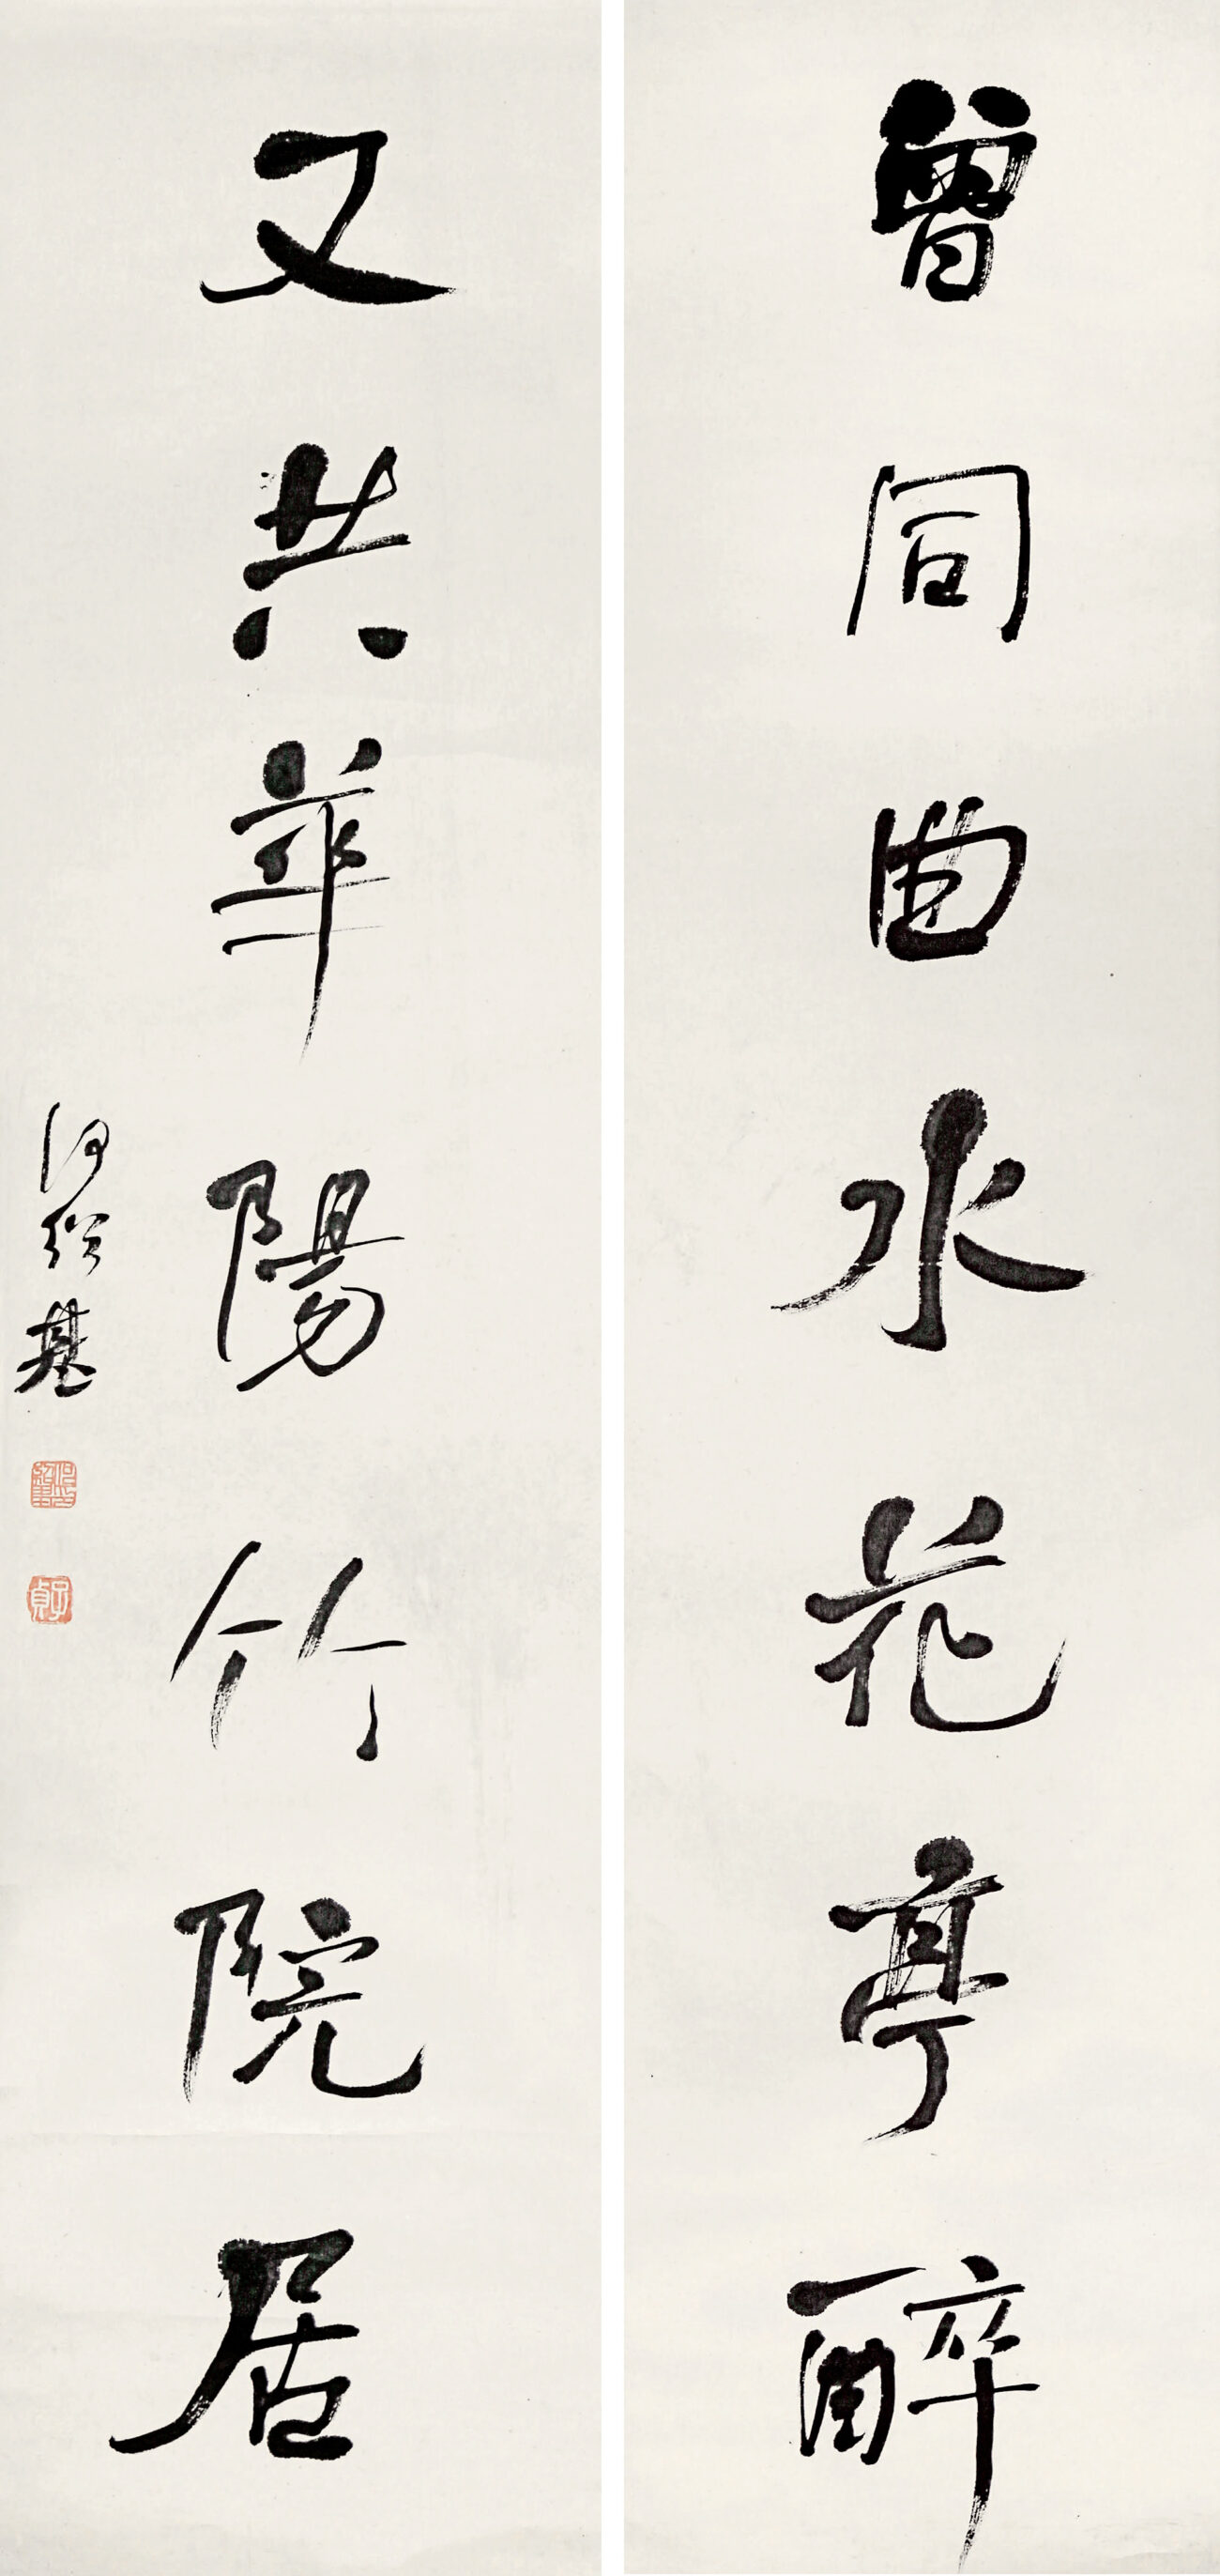 曾同曲水花亭醉
又共華陽竹院居
何紹基
子貞